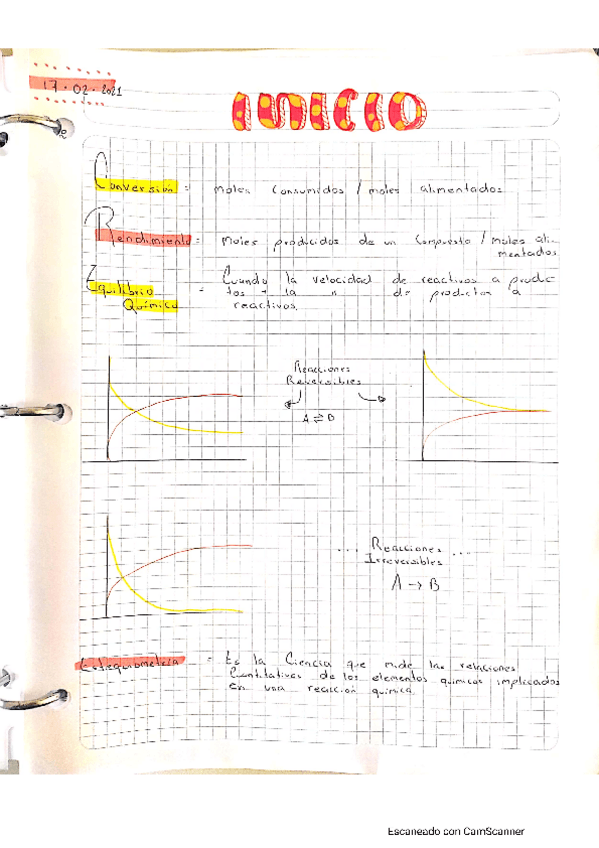 17.02.2021
INICIO
Conversión = moles consumidos / moles alimentados
Rendimiento = moles producidos de un compuesto / moles ali-
mentados
Equilibrio = Cuando la velocidad de reactivos a produc
Químico tos = la " de productos a
reactivos.
Reacciones
Reversibles
A ⇌ B
... Reacciones ...
Irreversibles
A → B
Estequiometría = Es la Ciencia que mide las relaciones
Cuantitativas de los elementos químicos implicados
en una reacción química.
Escaneado con CamScanner